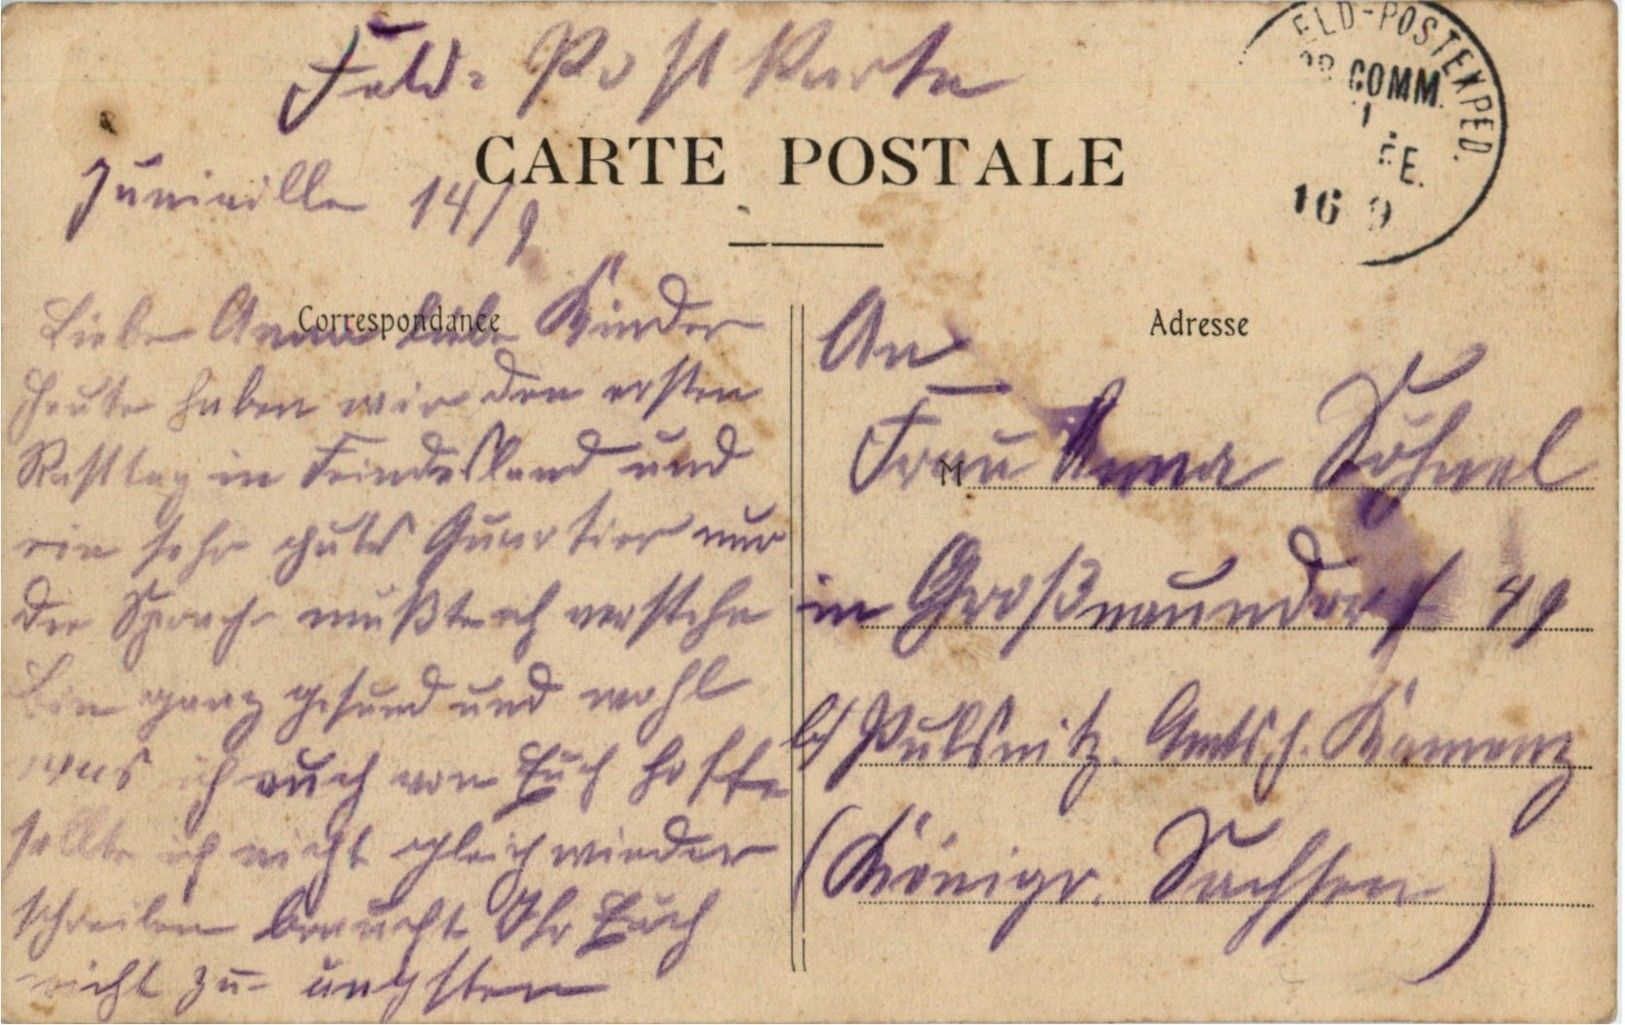 Feld-Postkarte
CARTE POSTALE
FELD-POSTEXPED.
COMM.
16 9
Juniville 14/9
Correspondance
Liebe Anna liebe Kinder
Heute haben wir den ersten
Rasttag in Feindesland und
ein sehr gutes Quartier nur
die Sprache müßte ich verstehn
bin ganz gesund und wohl
was ich auch von Euch hoffe
sollte ich nicht gleich wieder
schreiben braucht Ihr Euch
nicht zu ängsten
Adresse
An
M
Frau Anna Söhnel
in Großnaundorf 49
b/ Pulsnitz. Amtsh. Kamenz
(Königr. Sachsen)